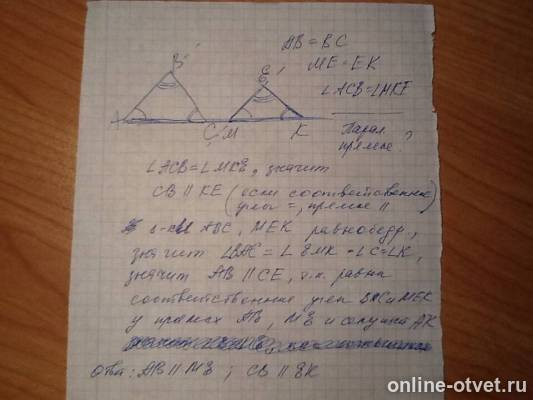 AB = BC
ME = EK
∠ACB = ∠MKE
Парал. прямые ?
B
E
A
C M K
∠ACB = ∠MKE, значит
CB || KE (если соответственные
углы =, прямые ||
ABC, MEK равнобедр.,
значит ∠BAC = ∠EMK = ∠C = ∠K,
значит AB || CE, т.к. равны
соответственные углы BAC и MEK
у прямых AB, ME и секущей AK
Ответ: AB || ME ; CB || EK
online-otvet.ru